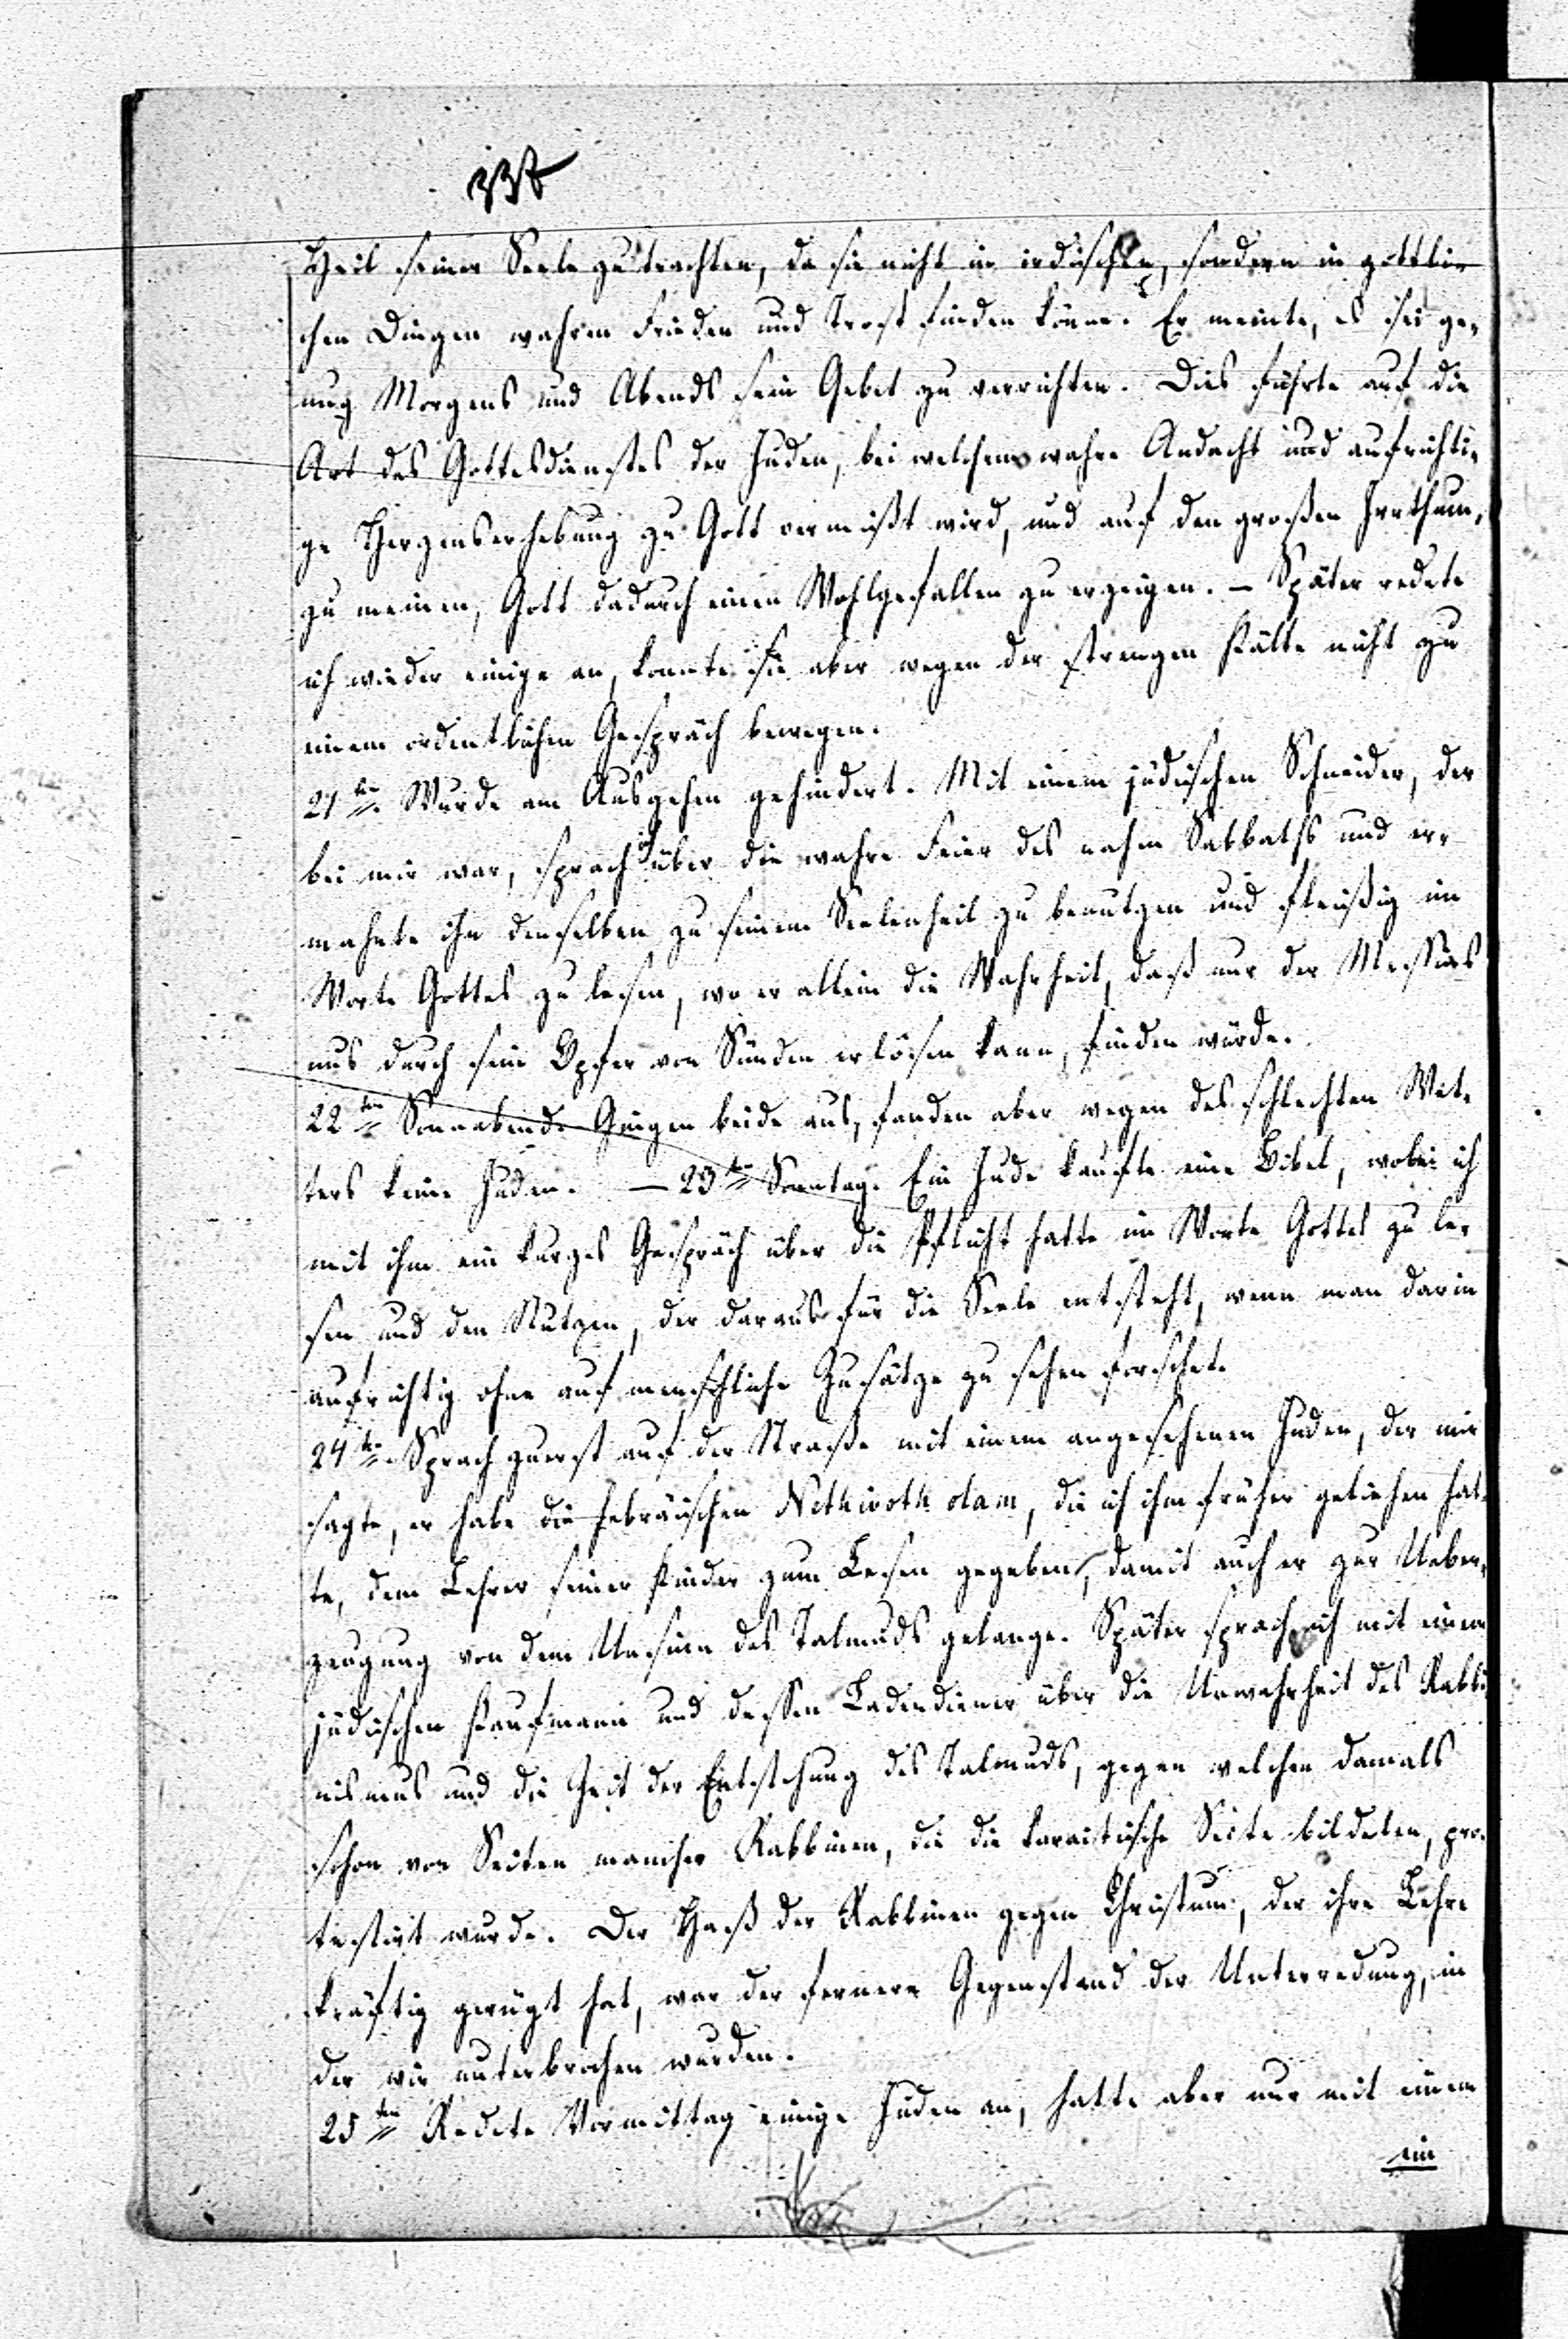 Heil seiner Seele zu trachten, da sie nicht in irdischen, sondern in göttli-
chen Dingen wahren Frieden und Trost finden könne. Er meinte, es sei ge-
nug Morgens und Abends sein Gebet zu verrichten. Dies führte auf die
Art des Gottesdienstes der Juden, bei welchem wahre Andacht und aufrichti-
ge Herzenserhebung zu Gott vermißt wird, und auf den großen Irrthum,
zu meinen, Gott dadurch einen Wohlgefallen zu erzeigen. – Später redete
ich wieder einige an, konnte sie aber wegen der strengen Kälte nicht zu
einem ordentlichen Gespräch bewegen.
21ten Wurde am Ausgehen gehindert. Mit einem jüdischen Schneider, der
bei mir war, sprach ich über die wahre Feier des nahen Sabbaths und er-
mahnte ihn denselben zu seinem Seelenheil zu benutzen und fleißig im
Worte Gottes zu lesen, wo er allein die Wahrheit, daß nur der Messias
uns durch sein Opfer von Sünden erlösen kann, finden würde.
22ten Sonnabend. Gingen beide aus, fanden aber wegen des schlechten Wet-
ters keine Juden. – 23ten Sonntag. Ein Jude kaufte eine Bibel, wobei ich
mit ihm ein kurzes Gespräch über die Pflicht hatte im Worte Gottes zu le-
sen und den Nutzen, der daraus für die Seele entsteht, wenn man darin
aufrichtig ohne auf menschliche Zusätze zu sehen forschet.
24ten Sprach zuerst auf der Straße mit einem angesehenen Juden, der mir
sagte, er habe die hebräischen Nethivoth olam, die ich ihm früher geliehen hat-
te, dem Lehrer seiner Kinder zum Lesen gegeben, damit auch er zur Ueber-
zeugung von dem Unsinn des Talmuds gelange. Später sprach ich mit einem
jüdischen Kaufmann und dessen Ladendiener über die Unwahrheit des Rabbi-
nismus und die Zeit der Entstehung des Talmuds, gegen welchen damals
schon von Seiten mancher Rabbinen, die die karaitische Seite bildeten, pro-
testirt wurde. Der Haß der Rabbinen gegen Christum, der ihre Lehre
kräftig gerügt hat, war der fernere Gegenstand der Unterredung, in
der wir unterbrochen wurden.
25ten Redete Vormittag einige Juden an, hatte aber nur mit einem
ein